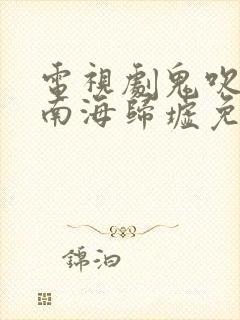 電視劇鬼吹
南海歸墟免
錦泊